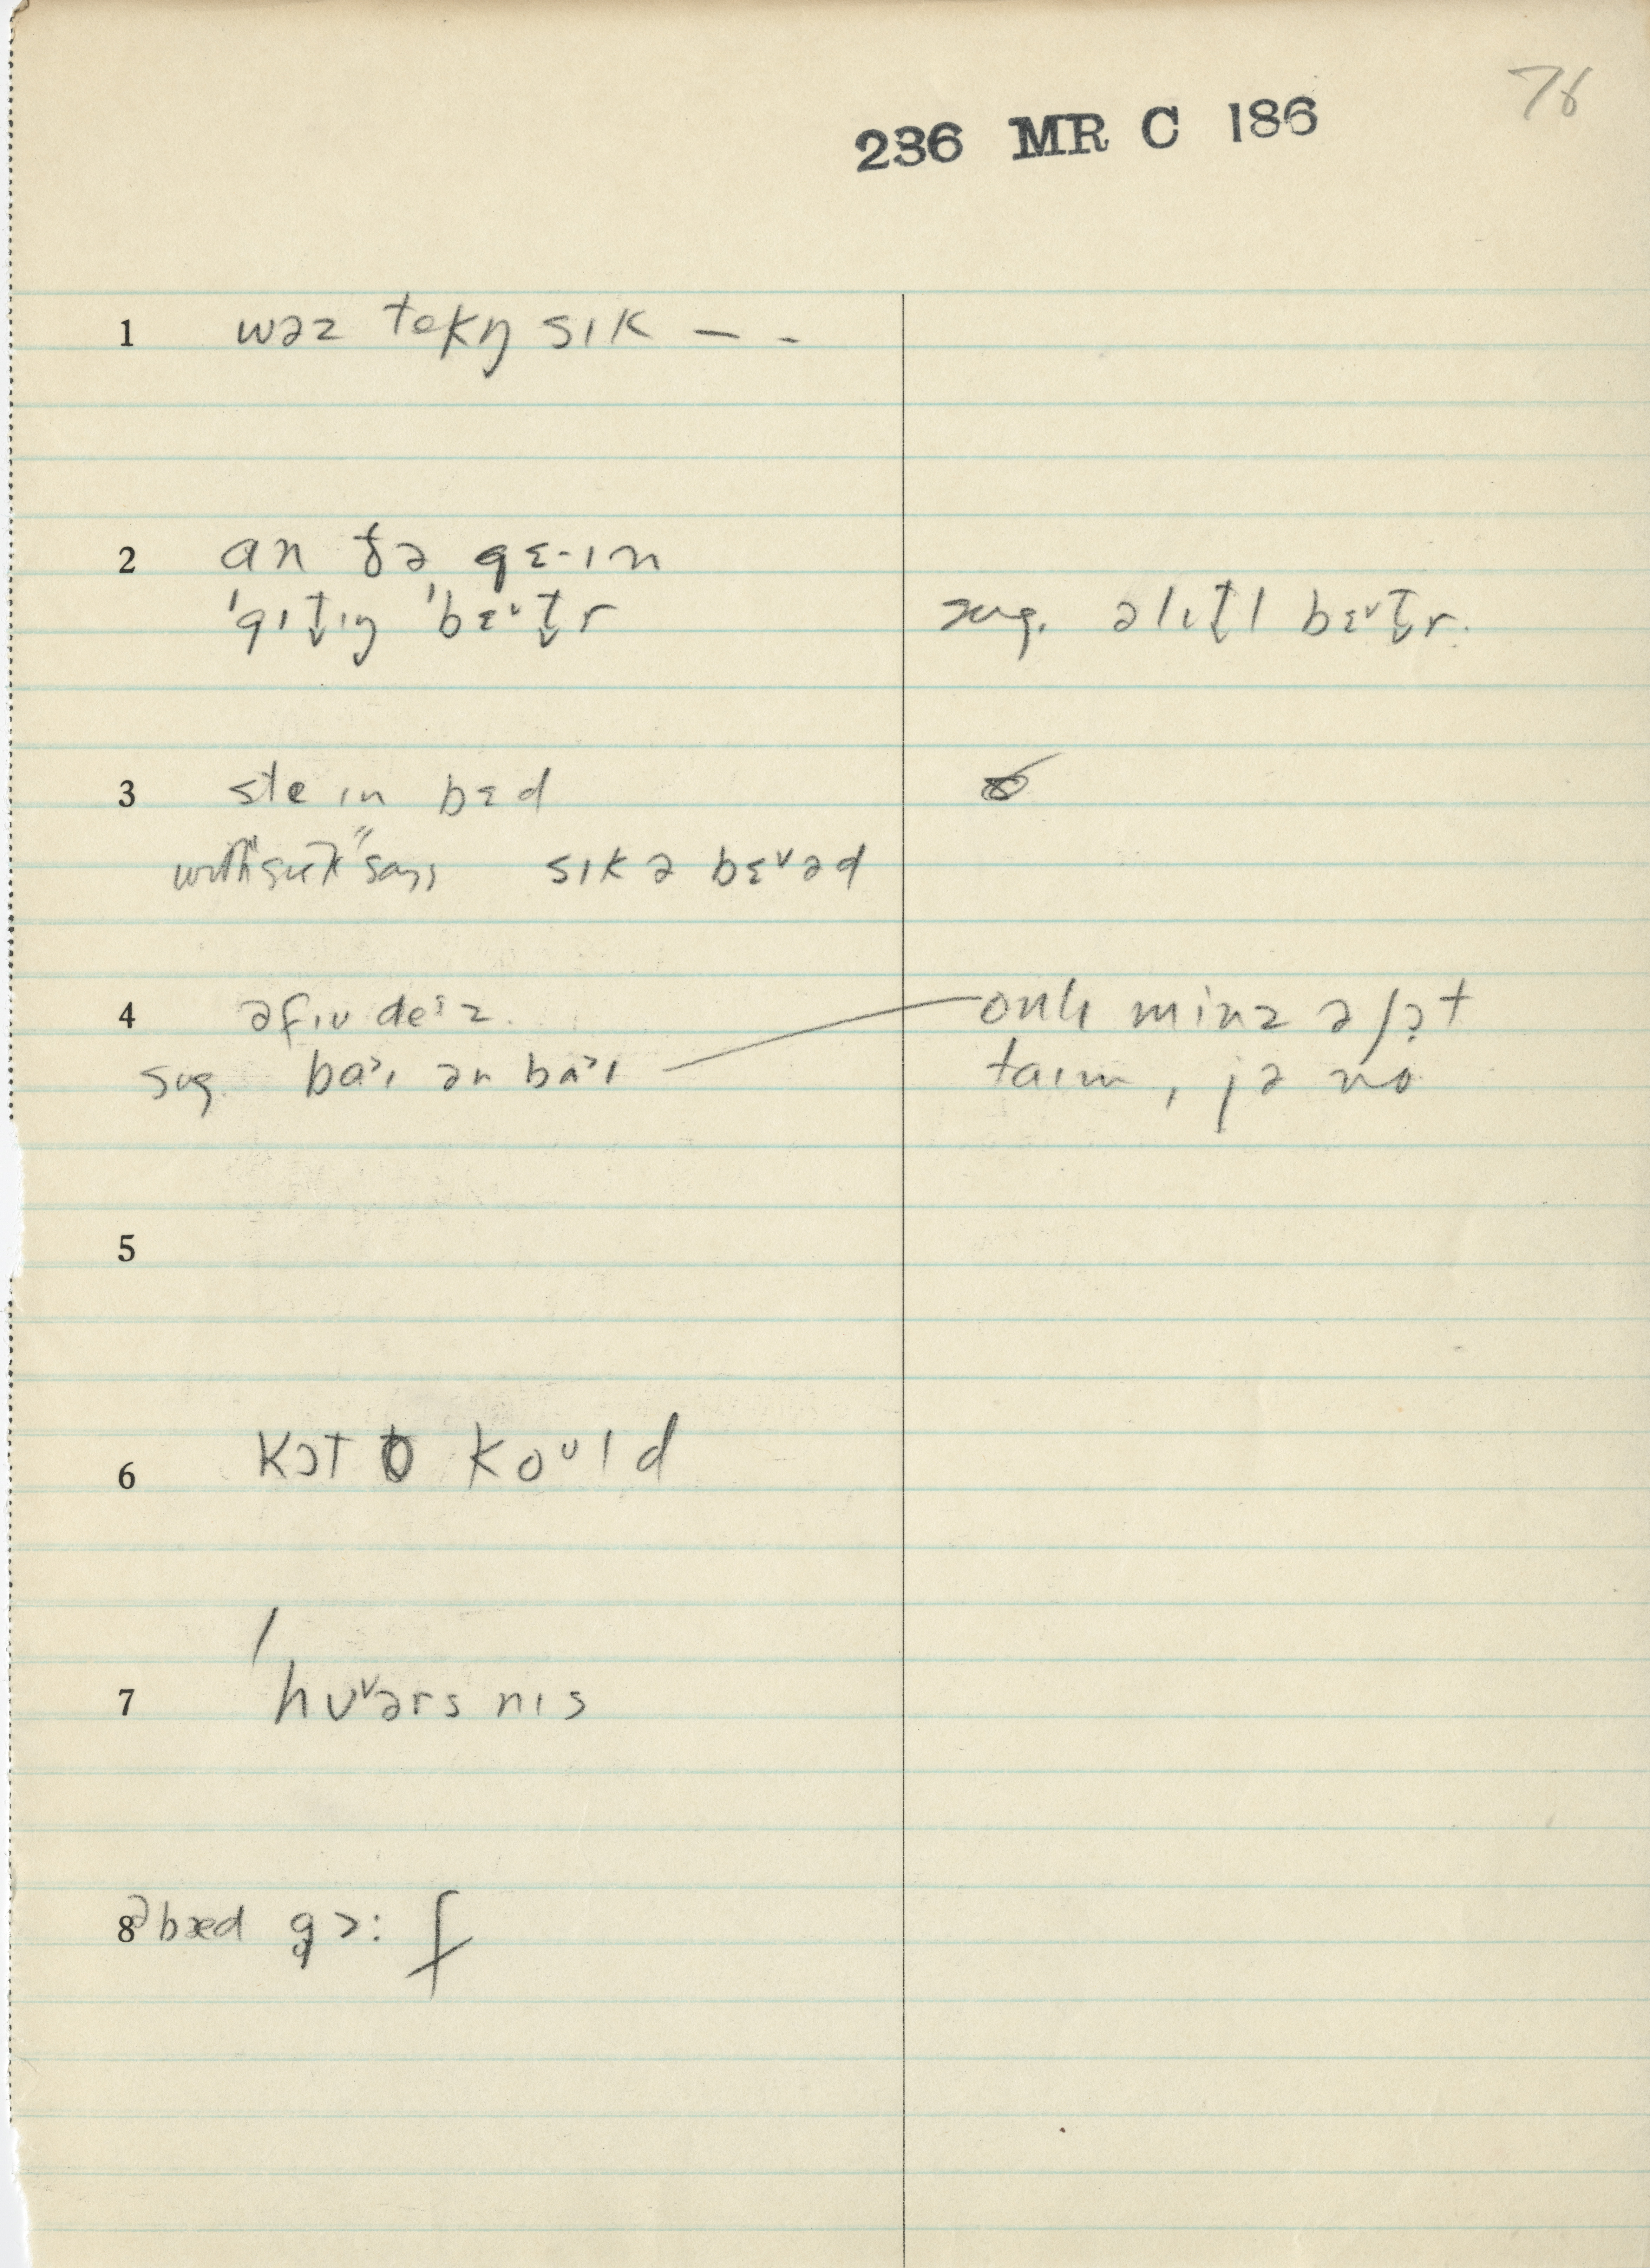 76
236 MR C 186
1 wəz tekŋ sɪk – -
2 an ðə gɛ-ɪn
'gɪt̬ɪŋ 'bɛ˅t̬r sug. əlɪt̬l bɛ˅t̬r.
3 ste ɪn bɛd
with "sick" says sɪk ə bɛ˅əd
4 əfɪu deɪz. onlɪ minz ə ʃɔt
sug baɪ ən baɪ taɪm, jə no
5
6 kɔt koᴜld
7 huᵛərs nɪs
8 ə bæd gɔ: f